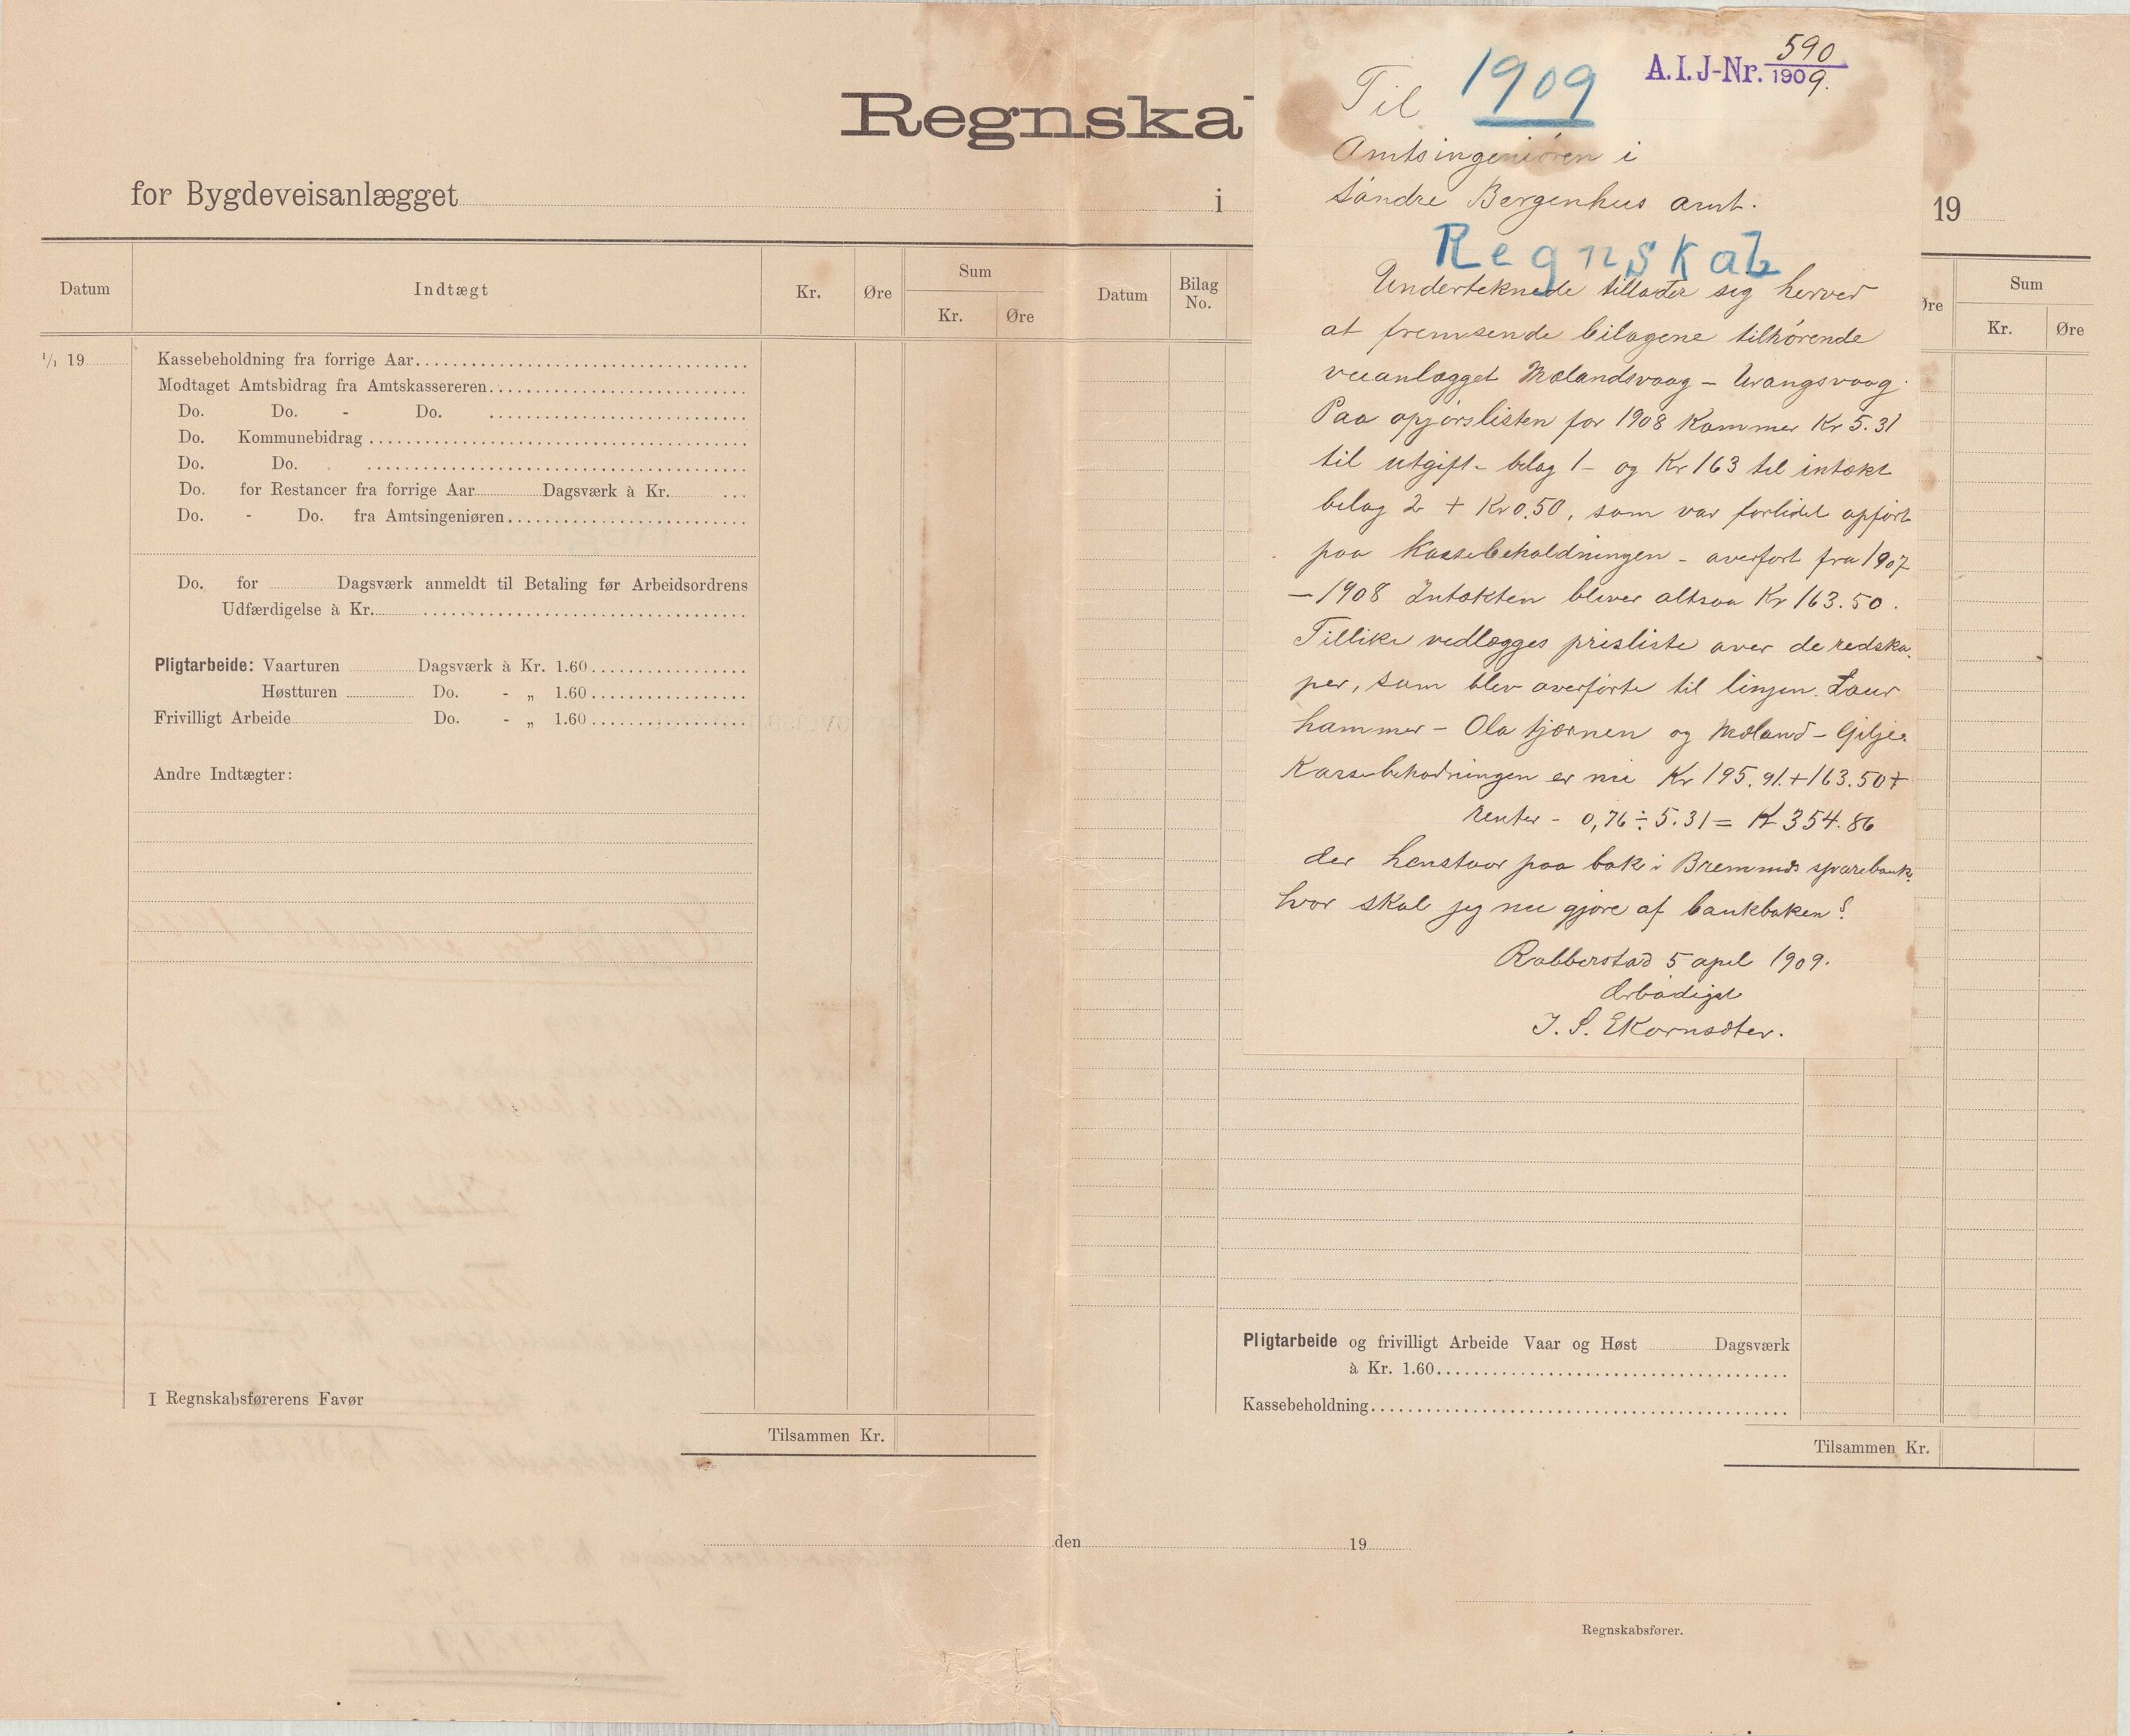 Regnska
for Bygdeveisanlægget i 19
Datum Indtægt Kr. Øre Sum Kr. Øre
1/1 19
Kassebeholdning fra forrige Aar
Modtaget Amtsbidrag fra Amtskassereren
Do. Do. - Do.
Do. Kommunebidrag
Do. Do.
Do. for Restancer fra forrige Aar Dagsværk à Kr.
Do. - Do. fra Amtsingeniøren
Do. for Dagsværk anmeldt til Betaling før Arbeidsordrens
Udfærdigelse à Kr.
Pligtarbeide: Vaarturen Dagsværk à Kr. 1.60
Høstturen Do. - „ 1.60
Frivilligt Arbeide Do. - „ 1.60
Andre Indtægter:
I Regnskabsførerens Favør
Tilsammen Kr.
Datum Bilag No. Øre Sum Kr. Øre
A.I.J-Nr. 590
1909.
Til 1909
Amtsingeniören i
Söndre Bergenhus amt.
Regnskab
Underteknede tillader seg herved
at fremsende bilagene tilhörende
veianlægget Mælandsvaag - Urangsvaag.
Paa opgjörslisten for 1908 kommer Kr 5.31
til utgift - belag 1 - og Kr 163 til intækt
belag 2 + Kr 0.50, som var forlidet opfört
paa kassebeholdningen - overfört fra 1907
- 1908 Intækten bliver altsaa Kr 163.50.
Tillike vedlægges prisliste over de redska-
per, som blev overförte til linjen. Laur
hammer - Ola tjærnen og Mæland - Gilje.
Kassebehodningen er nu Kr 195.91. + 163.50 +
renter - 0,76 ÷ 5.31 = Kr 354.86
der henstaar paa bok i Bremnes sparebank.
hvor skal jeg nu gjöre af bankboken?
Robberstad 5 apel 1909.
Ærbödigst
J. S. Ekornsæter.
Pligtarbeide og frivilligt Arbeide Vaar og Høst Dagsværk
à Kr. 1.60
Kassebeholdning
Tilsammen Kr.
den 19
Regnskabsfører.